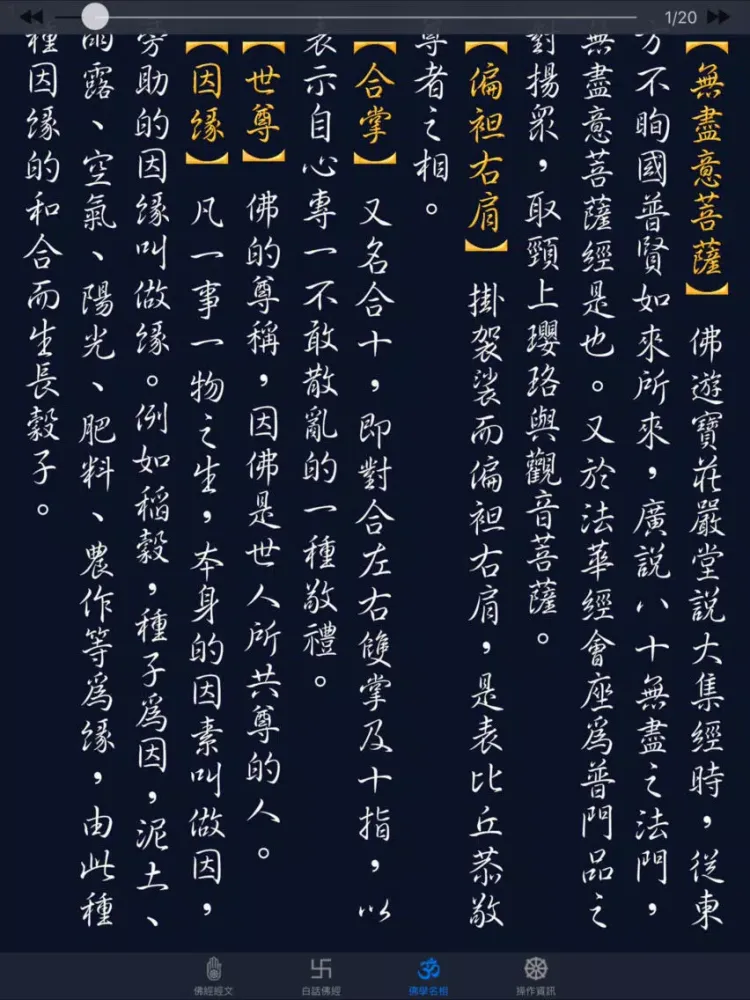 1/20
【無盡意菩薩】 佛遊寶莊嚴堂說大集經時，從東
方不眴國普賢如來所來，廣說八十無盡之法門，
無盡意菩薩經是也。又於法華經會座為普門品之
對揚眾，取頸上瓔珞與觀音菩薩。
【偏袒右肩】 掛袈裟而偏袒右肩，是表比丘恭敬
尊者之相。
【合掌】 又名合十，即對合左右雙掌及十指，以
表示自心專一不敢散亂的一種敬禮。
【世尊】 佛的尊稱，因佛是世人所共尊的人。
【因緣】 凡一事一物之生，本身的因素叫做因，
旁助的因緣叫做緣。例如稻穀，種子為因，泥土、
雨露、空氣、陽光、肥料、農作等為緣，由此種
種因緣的和合而生長穀子。
佛經經文
白話佛經
佛學名相
操作資訊